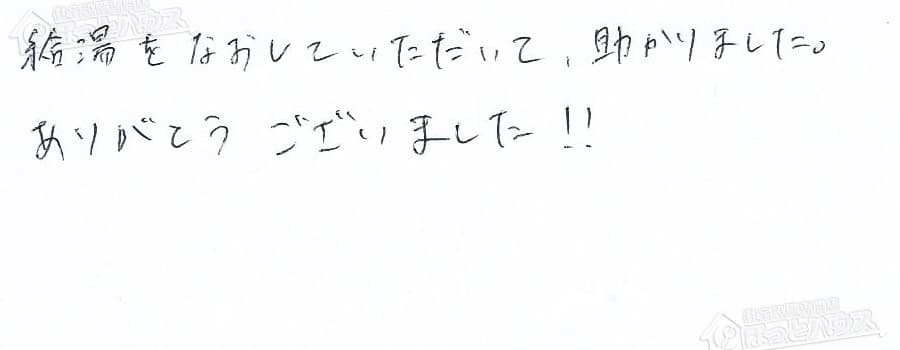 給湯をなおしていただいて、助かりました。
ありがとうございました!!
ほっとハウス